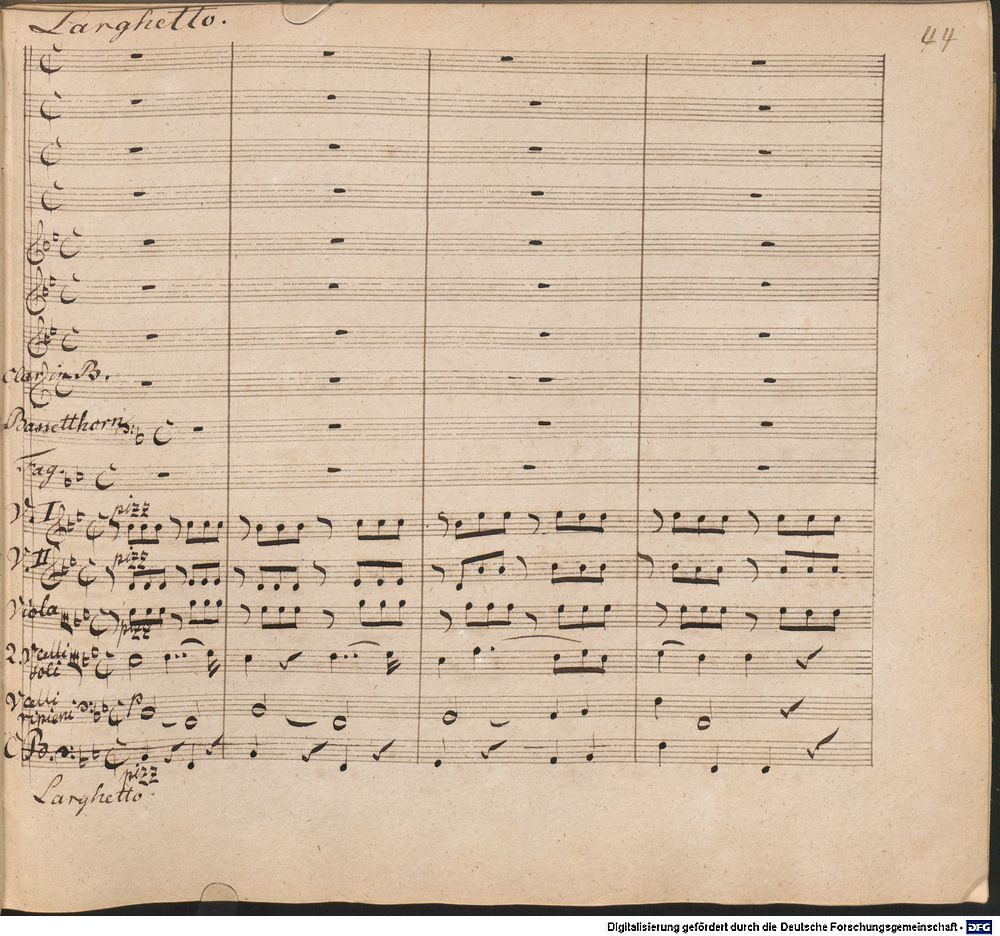 Larghetto.
44
Clar. in B.
Bassetthorn
Fag.
V. I
pizz
V. II
pizz
Viola
pizz
2. Vcelli
soli
Vcelli
ripieni
p
C B.
pizz
Larghetto
Digitalisierung gefördert durch die Deutsche Forschungsgemeinschaft - DFG